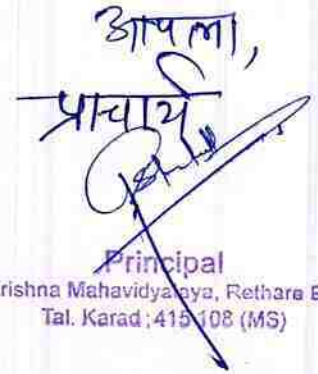 आपला,
प्राचार्य
Principal
rishna Mahavidyalaya, Rethare B
Tal. Karad; 415 108 (MS)